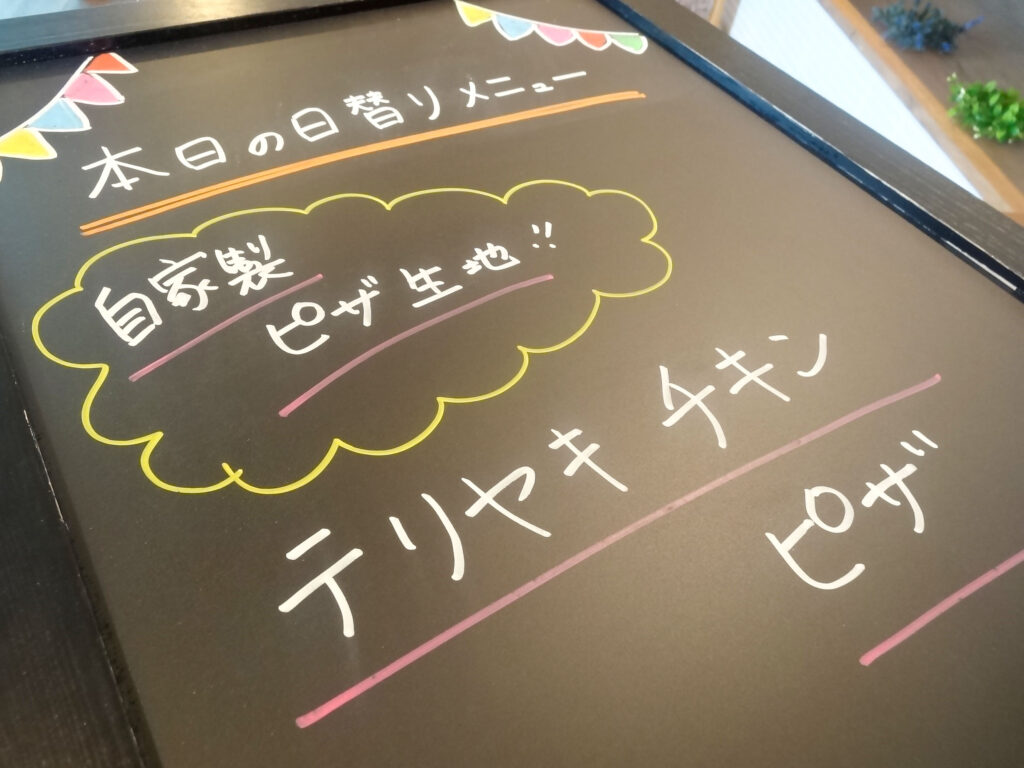 本日の日替りメニュー
自家製
ピザ生地!!
テリヤキチキン
ピザ